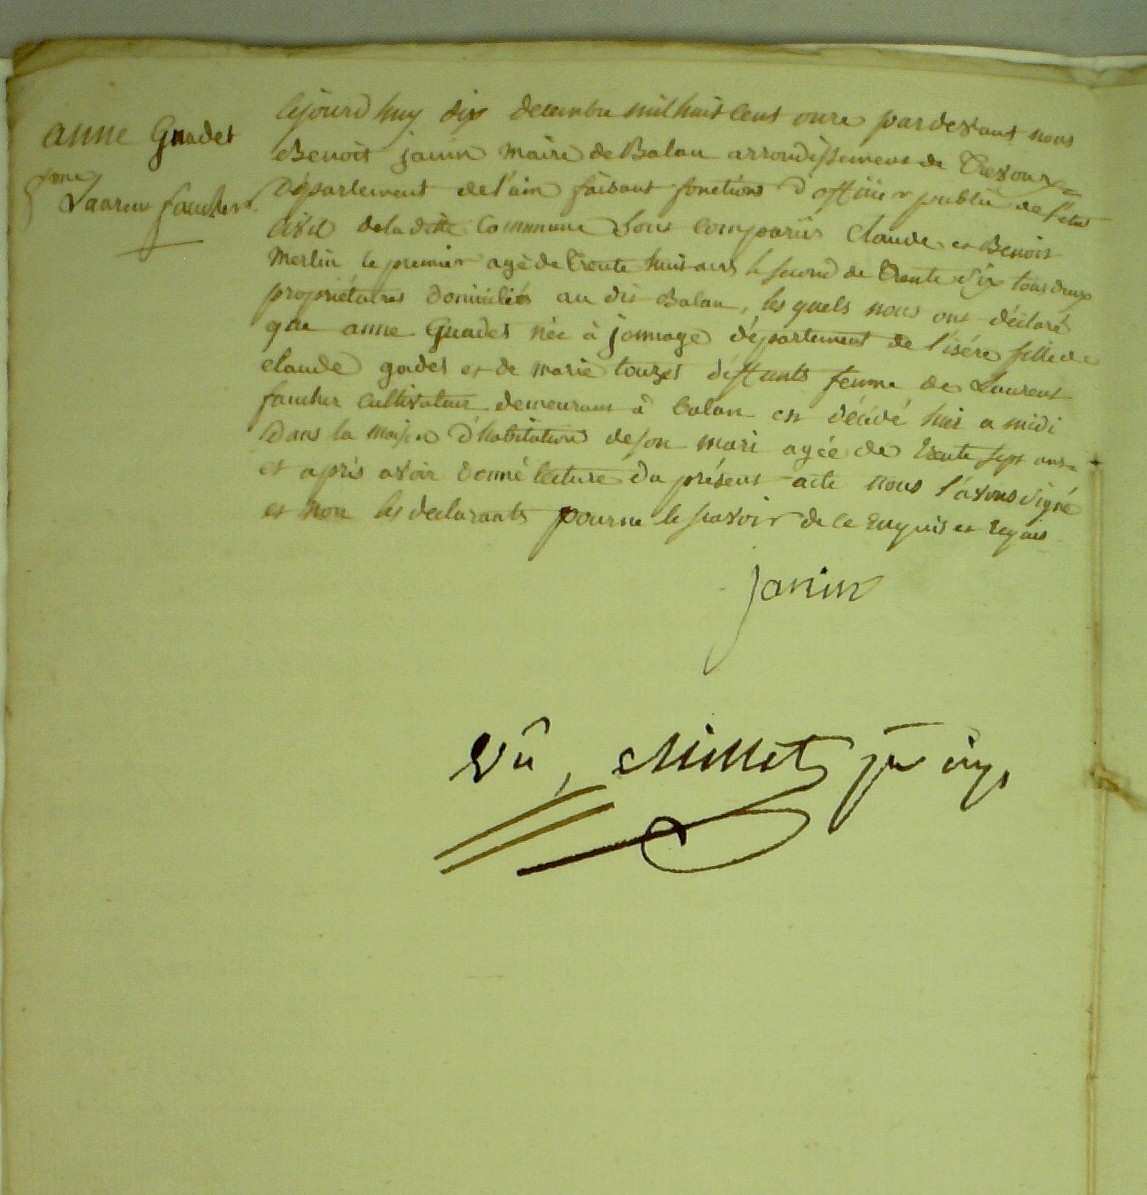 anne Guadet
fme
Laurent faucher
Cejourd huy dix decembre mil huit cent onze pardevant nous
Benoit janin Maire de Balan arrondissement de Trevoux
Département de l'ain faisant fonctions d'officier public de l'etat
Civil de la ditte Commune Sont comparus Claude et Benoit
Merlin le premier agé de trente huit ans le second de trente six tous deux
propriétaires domiciliés au dit Balan, les quels nous ont déclaré
que anne Guadet née à jonnage département de l'isére fille de
claude gadet et de marie touzet deffunts femme de Laurent
faucher cultivateur demeurant à balan est décédé hier a midi
dans la maison d'habitation de son mari agée de trente sept ans
et aprés avoir donné lecture du présent acte nous l'avons signé
et non les declarants pour ne le scavoir de ce enquis et requis
Janin
Vu, Millet